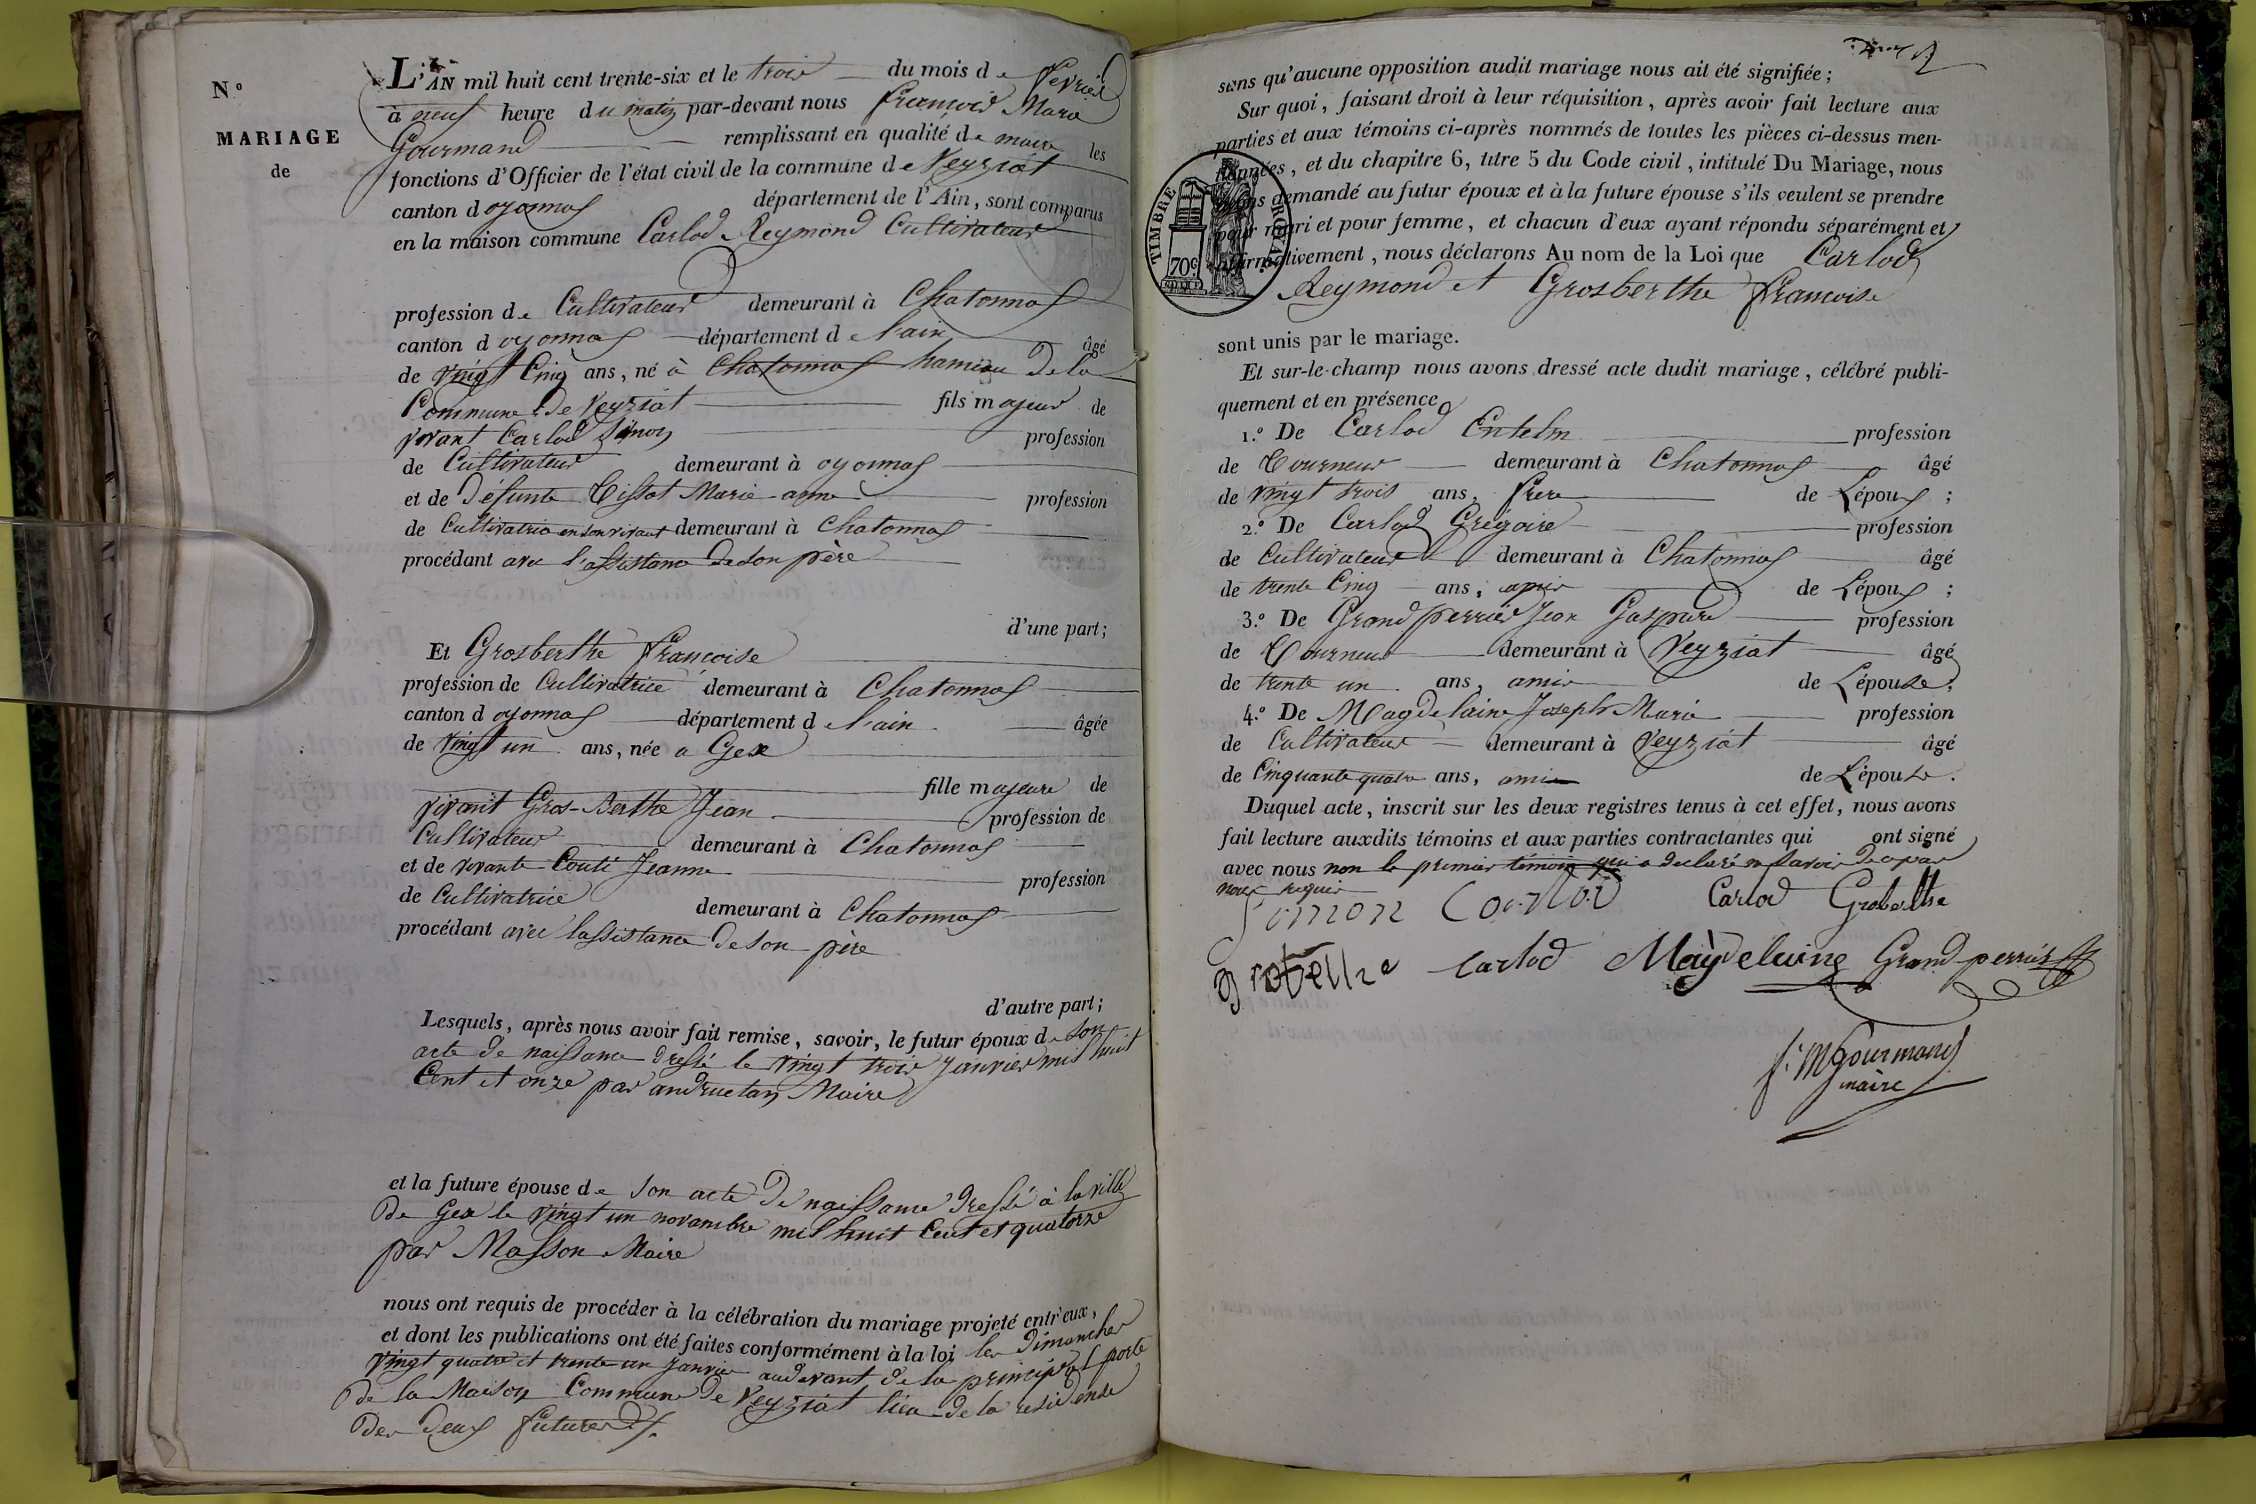 N.º
MARIAGE
de
L'AN mil huit cent trente-six et le trois du mois de fevrier
à neuf heure du matin par-devant nous francois Marie
Gourmand remplissant en qualité de maire les
fonctions d'Officier de l'état civil de la commune de Veyziat
canton d oyonnas département de l'Ain, sont comparus
en la maison commune Carlod Reymond Cultivateur
profession de Cultivateur demeurant à Chatonnas
canton d oyonnas département de l'ain âgé
de vingt Cinq ans, né à Chatonnas hameau de la
Commune de Veyziat fils majeur de
vivant Carlod Simon profession
de Cultivateur demeurant à oyonnas
et de défunte Tissot Marie anne profession
de Cultivatrice en son vivant demeurant à Chatonnas
procédant avec l'assistance de son père
d'une part;
Et Grosberthe françoise
profession de Cultivatrice demeurant à Chatonnas
canton d oyonnas département de l'ain âgée
de vingt un ans, née a Gex
fille majeure de
vivant Gros-Berthe Jean profession de
Cultivateur demeurant à Chatonnas
et de vivante Couti Jeanne profession
de Cultivatrice demeurant à Chatonnas
procédant avec lassistance de son père
d'autre part;
Lesquels, après nous avoir fait remise, savoir, le futur époux de son
acte de naissance dressé le vingt trois Janvier mil huit
Cent et onze par andruetan Maire
et la future épouse de son acte de naissance dressé à la ville
de Gex le vingt un novembre mil huit Cent et quatorze
par Masson Maire
nous ont requis de procéder à la célébration du mariage projeté entr'eux,
et dont les publications ont été faites conformément à la loi les dimanches
vingt quatre et trente un Janvier audevant de la principal porte
de la Maison Commune de Veyziat lieu de la residence
des deux futures
sans qu'aucune opposition audit mariage nous ait été signifiée;
Sur quoi, faisant droit à leur réquisition, après avoir fait lecture aux
parties et aux témoins ci-après nommés de toutes les pièces ci-dessus men-
tionnées, et du chapitre 6, titre 5 du Code civil, intitulé Du Mariage, nous
avons demandé au futur époux et à la future épouse s'ils veulent se prendre
pour mari et pour femme, et chacun d'eux ayant répondu séparément et
affirmativement, nous déclarons Au nom de la Loi que Carlod
Reymond et Grosberthe francoise
TIMBRE ROYAL
70c
sont unis par le mariage.
Et sur-le-champ nous avons dressé acte dudit mariage, célébré publi-
quement et en présence
1.º De Carlod Entelm profession
de Tourneur demeurant à Chatonnas âgé
de vingt trois ans, frere de Lépoux ;
2.º De Carlod Grégoire profession
de Cultivateur demeurant à Chatonnas âgé
de trente Cinq ans, amis de Lépoux ;
3.º De Grand perrier Jean Gaspard profession
de Tourneur demeurant à Veyziat âgé
de trente un ans, amis de Lépouse ;
4.º De Magdelaine Joseph Marie profession
de Cultivateur demeurant à Veyziat âgé
de Cinquante quatre ans, amis de Lépouse.
Duquel acte, inscrit sur les deux registres tenus à cet effet, nous avons
fait lecture auxdits témoins et aux parties contractantes qui ont signé
avec nous non le premier témoin qui a declaré ne savoir de ce par
nous requis
Simon Carlod Carlod Groberthe
groberthe Carlod Magdelaine Grand perrier
f. M Gourmand
maire